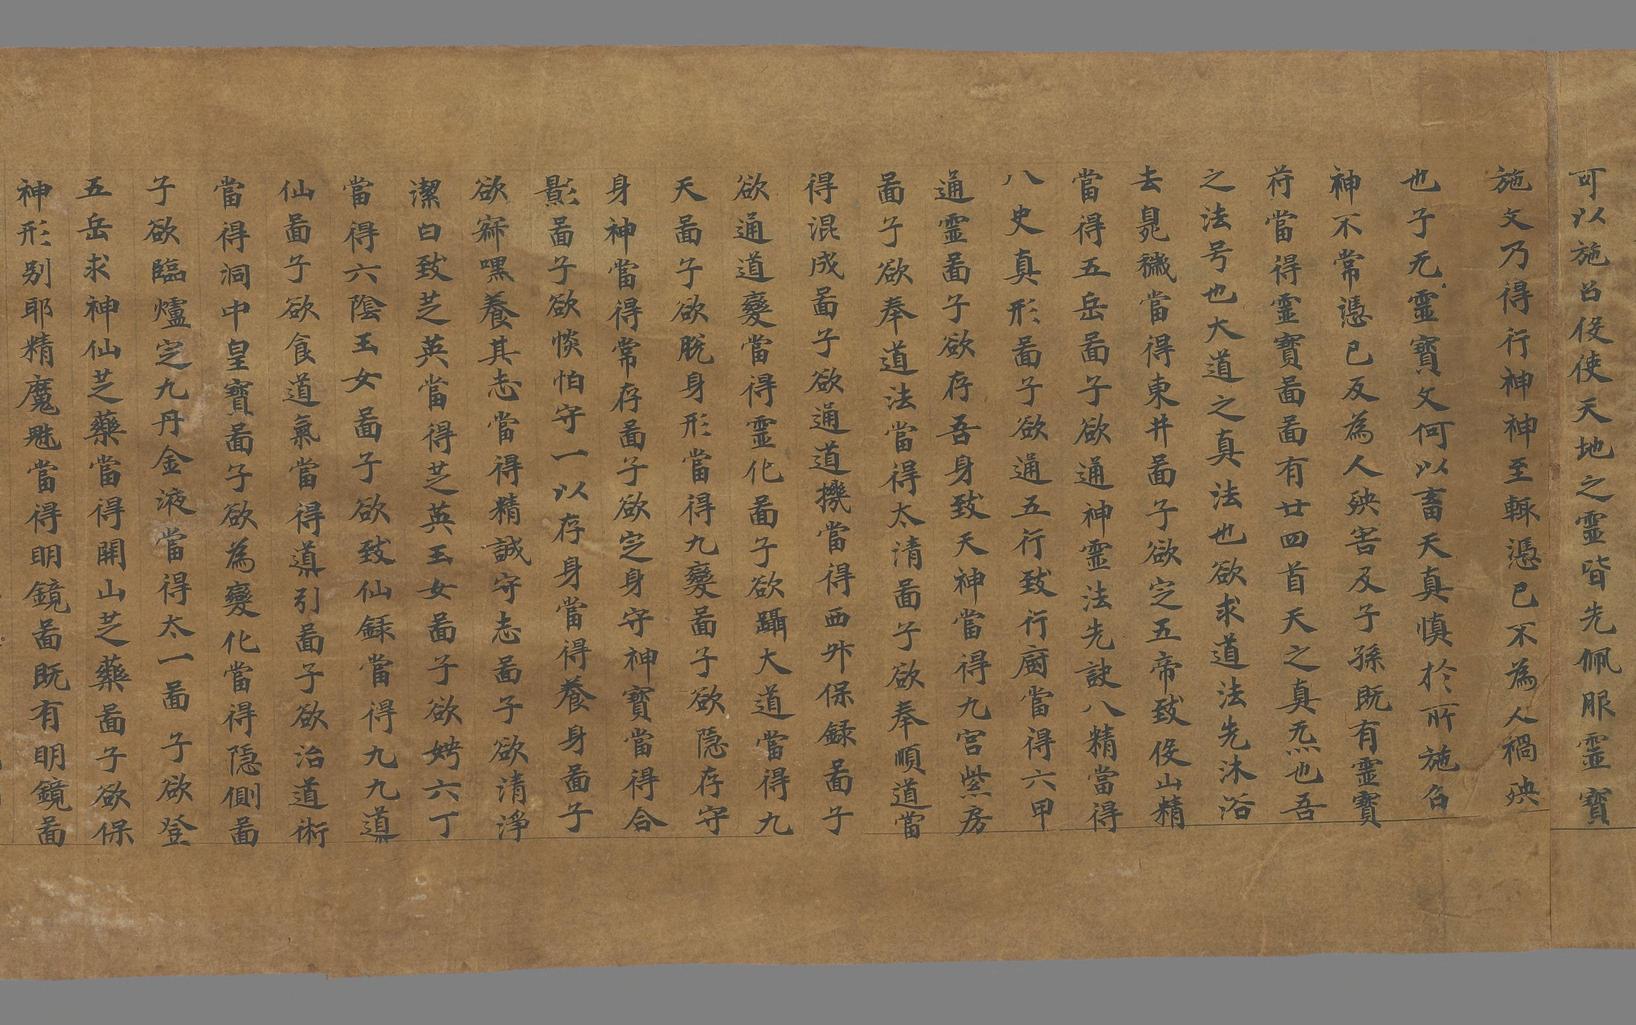 可以施召役使天地之靈皆先佩服靈寶
施文乃得行神神至輙憑已不為人禍殃
也子无靈寶文何以畜天真慎於所施召
神不常憑已反為人殃害及子孫既有靈寶
苻當得靈寶啚啚有廿四首天之真炁也吾
之法号也大道之真法也欲求道法先沐浴
去臰穢當得東井啚子欲定五帝致伇山精
當得五岳啚子欲通神靈法先訣八精當得
八史真形啚子欲通五行致行廚當得六甲
通靈啚子欲存吾身致天神當得九宮紫房
啚子欲奉道法當得太清啚子欲奉順道當
得混成啚子欲通道機當得西升保録啚子
欲通道變當得靈化啚子欲躡大道當得九
天啚子欲脫身形當得九變啚子欲隱存守
身神當得常存啚子欲定身守神寶當得合
景啚子欲惔怕守一以存身當得養身啚子
欲寂嘿養其志當得精誠守志啚子欲清淨
潔白致芝英當得芝英玉女啚子欲娉六丁
當得六陰玉女啚子欲致仙録當得九九道
仙啚子欲食道氣當得導引啚子欲治道術
當得洞中皇寶啚子欲為變化當得隱側啚
子欲臨爐定九丹金液當得太一啚子欲登
五岳求神仙芝藥當得開山芝藥啚子欲保
神形別耶精魔魅當得明鏡啚既有明鏡啚